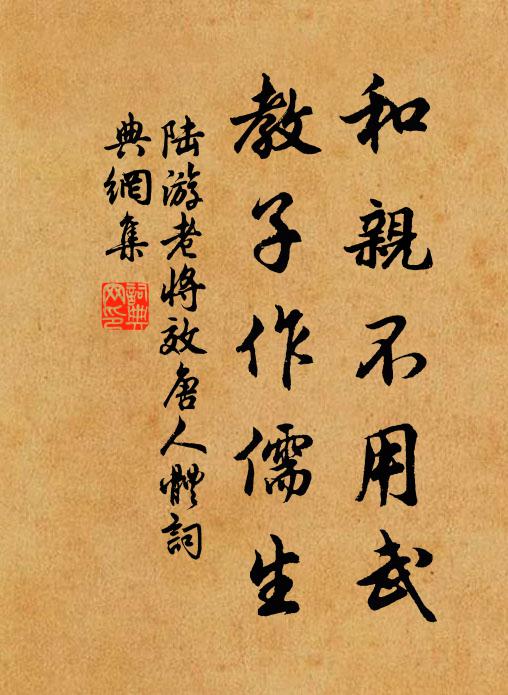 和親不用武
教子作儒生
陸游老將效唐人體詞
典網集
詞典
网印